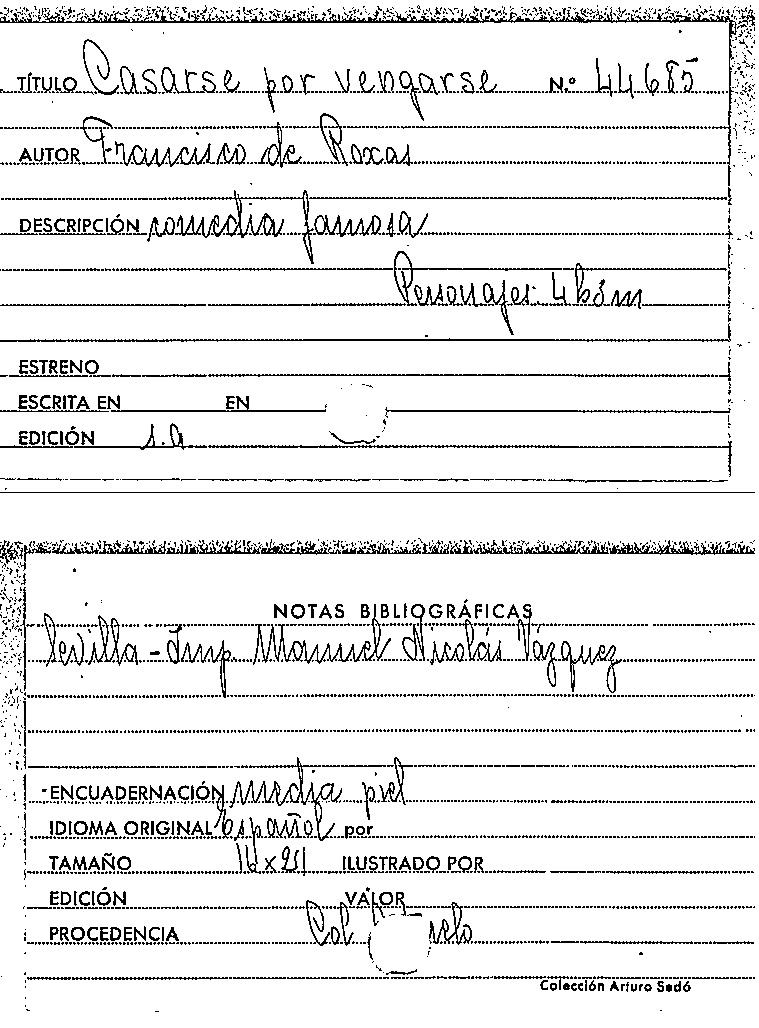 TÍTULO Casarse por vengarse N.º 44685
AUTOR Francisco de Roxas
DESCRIPCIÓN comedia famosa
Personajes: 4h3m
ESTRENO
ESCRITA EN EN
EDICIÓN s.a
NOTAS BIBLIOGRÁFICAS
Sevilla - Imp. Manuel Nicolás Vázquez
ENCUADERNACIÓN media piel
IDIOMA ORIGINAL Español por
TAMAÑO 16 x 21 ILUSTRADO POR
EDICIÓN VALOR
PROCEDENCIA Col
Colección Arturo Sedó